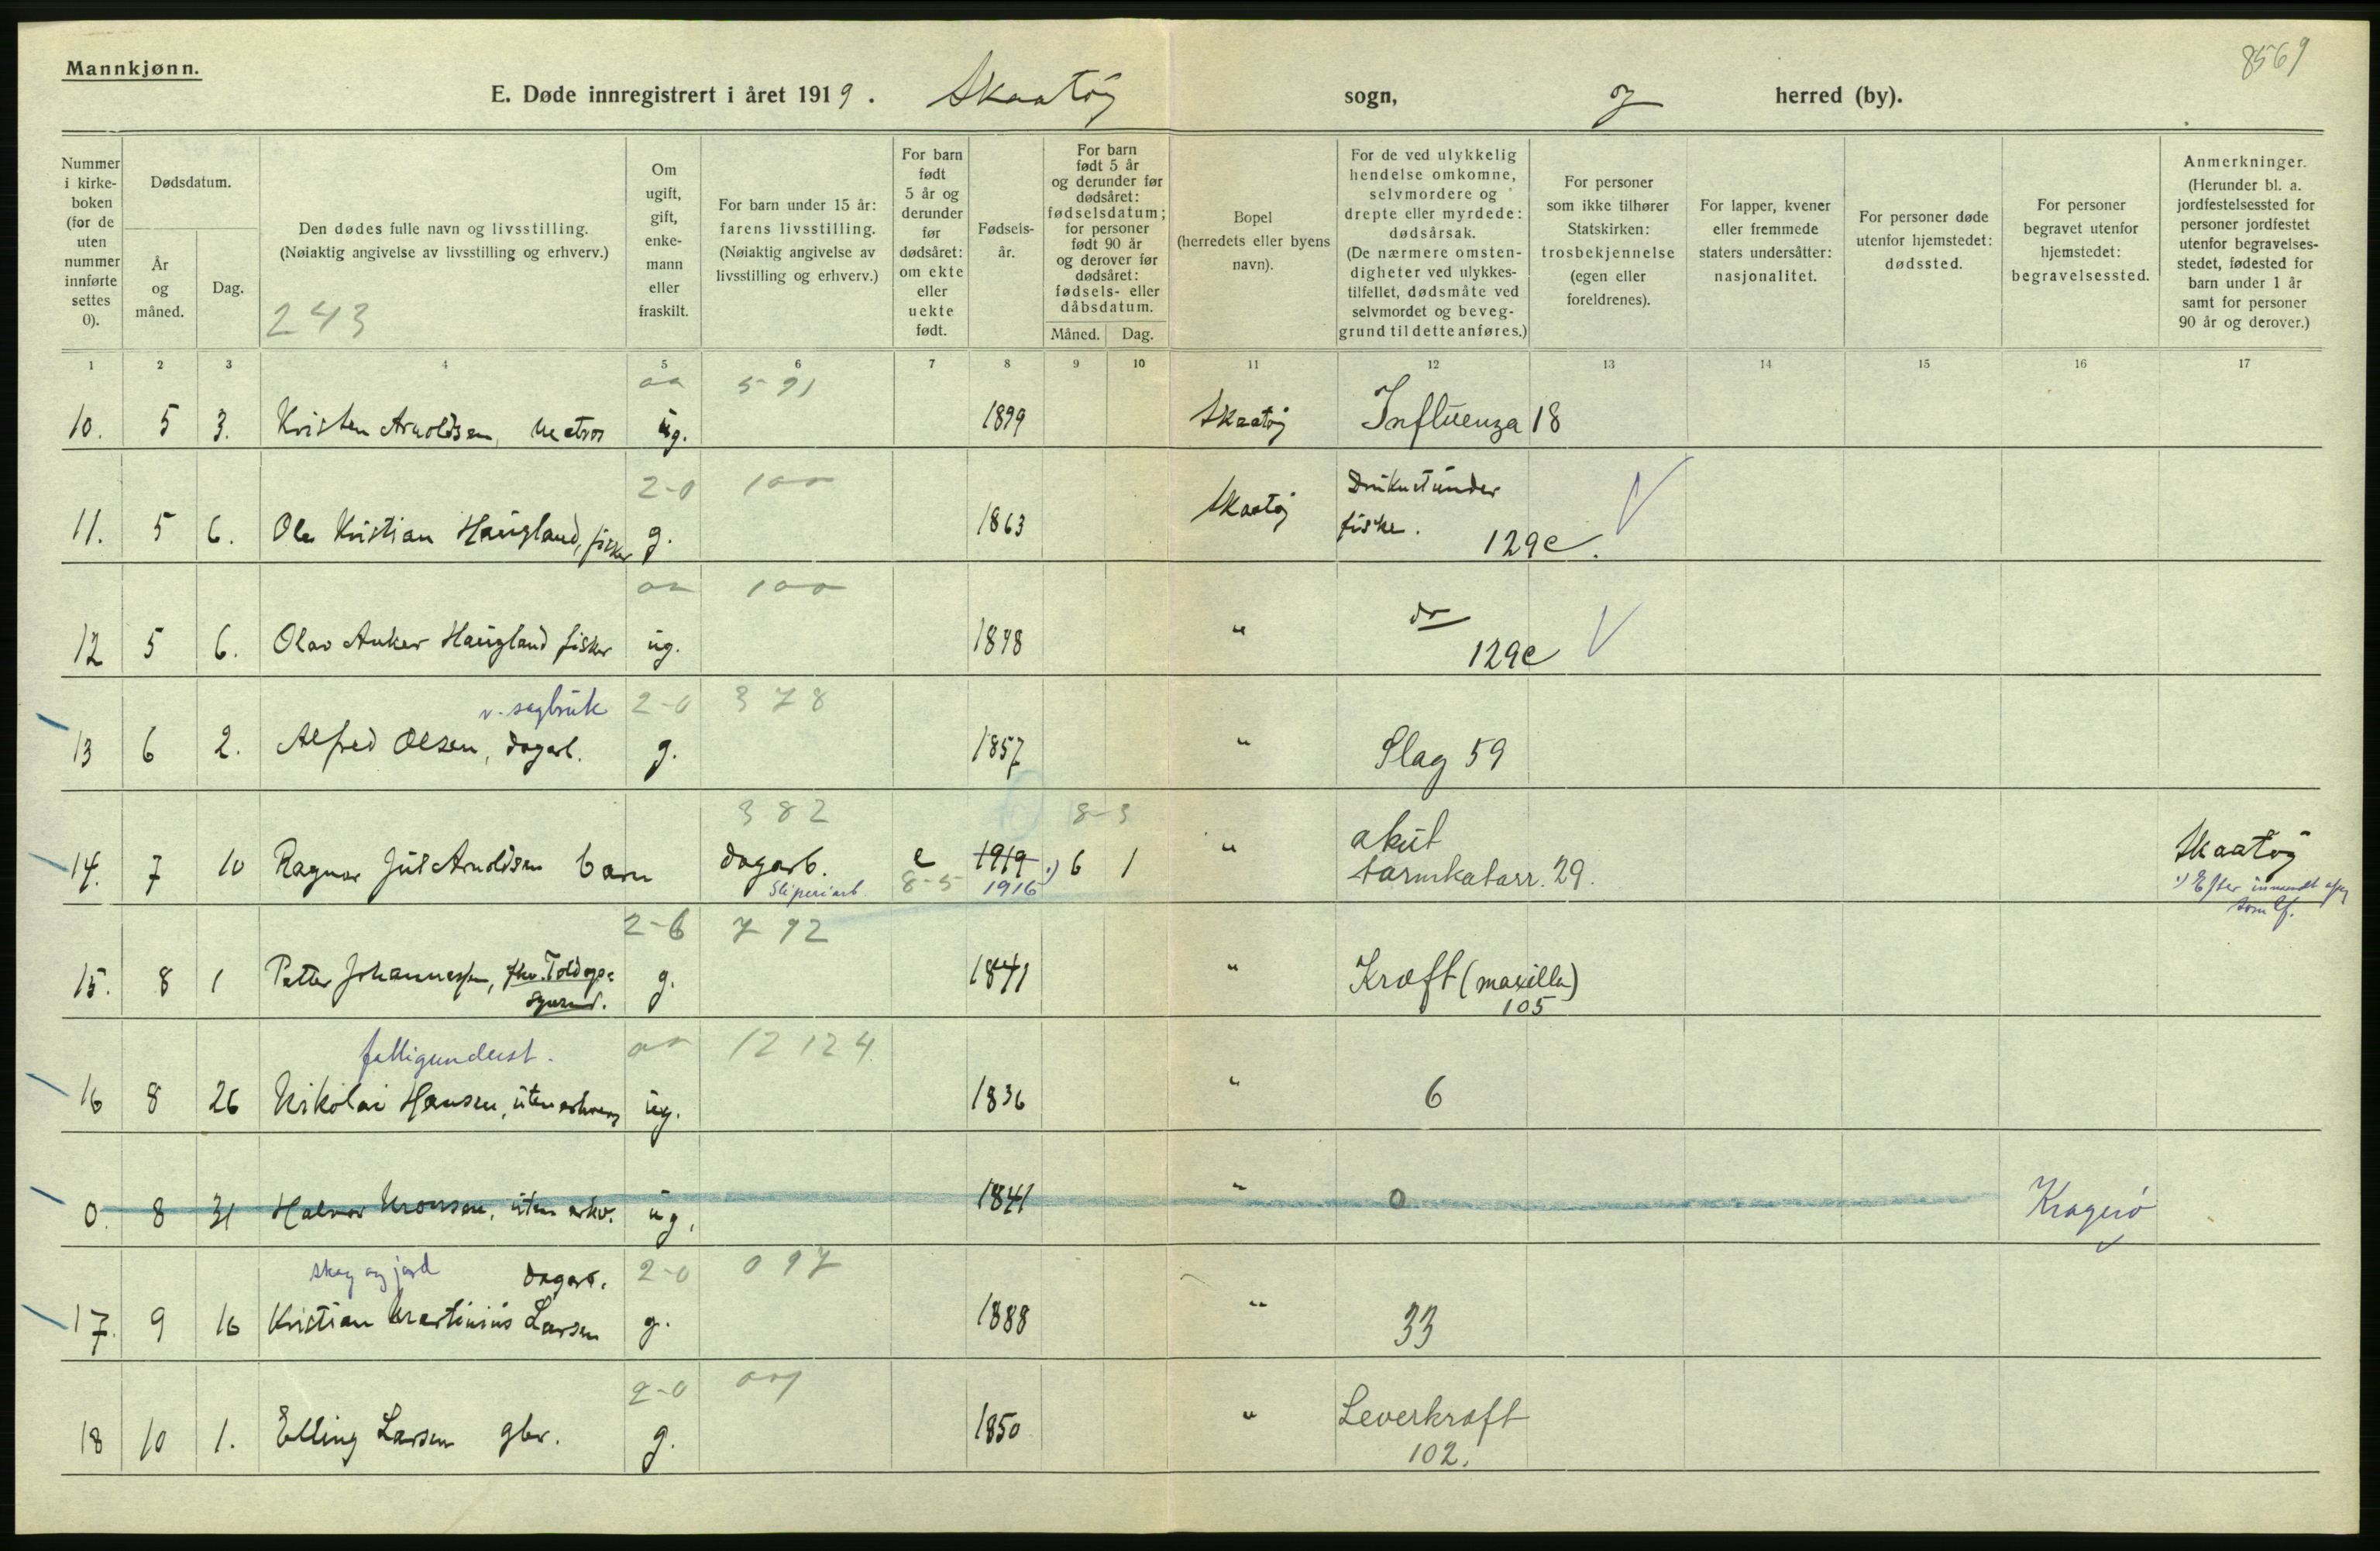 8569
Mannkjønn.
E. Døde innregistrert i året 1919. Skaatøy sogn, og herred (by).
Nummer i kirke- boken (for de uten nummer innførte settes 0).
Dødsdatum.
År og måned.
Dag.
Den dødes fulle navn og livsstilling.
(Nøiaktig angivelse av livsstilling og erhverv.)
243
Om ugift, gift, enke- mann eller fraskilt.
For barn under 15 år: farens livsstilling. (Nøiaktig angivelse av livsstilling og erhverv.)
For barn født 5 år og derunder før dødsåret: om ekte eller uekte født.
Fødsels- år.
For barn født 5 år og derunder før dødsåret: fødselsdatum; for personer født 90 år og derover før dødsåret: fødsels- eller dåbsdatum.
Måned. Dag.
Bopel (herredets eller byens navn).
For de ved ulykkelig hendelse omkomne, selvmordere og drepte eller myrdede: dødsårsak. (De nærmere omsten- digheter ved ulykkes- tilfellet, dødsmåte ved selvmordet og beveg- grund til dette anføres.)
For personer som ikke tilhører Statskirken: trosbekjennelse (egen eller foreldrenes).
For lapper, kvener eller fremmede staters undersåtter: nasjonalitet.
For personer døde utenfor hjemstedet: dødssted.
For personer begravet utenfor hjemstedet: begravelsessted.
Anmerkninger. (Herunder bl. a. jordfestelsessted for personer jordfestet utenfor begravelses- stedet, fødested for barn under 1 år samt for personer 90 år og derover.)
1 2 3 4 5 6 7 8 9 10 11 12 13 14 15 16 17
591
10. 5 3. Kristen Arnoldsen, matros ug. 1899 Skaatøy Influenza 18
2-0 100
11. 5 6. Ole Kristian Haugland, fisker g. 1863 Skaatøy Druknet under
fiske. 129e.
100
12 5 6. Olav Anker Haugland fisker ug. 1898 " do
129e
v. sagbruk 2-0 378
13 6 2. Alfred Olsen, dagarb. g. 1857 " Slag 59
382 8-3
14. 7 10 Ragnar Jul Arnoldsen barn dagarb. e 1919 1) 6 1 " akut
tarmkatarr. 29. Skaatøy
Sliperiarb. 8-5 1916 1) Efter innsendt
2-6 792
15. 8 1 Petter Johannessen, fhv. Toldopp-
synsm. g. 1841 " Kræft (maxilla)
105
fattigunderst. 12124
16 8 26 Nikolai Hansen, uten erhverv ug. 1836 " 6
0. 8 31 Halvor Monsen, uten erhv. ug. 1841 " 0 Kragerø
skog og jord dagarb. 2-0 097
17. 9 16 Kristian Martinius Larsen g. 1888 " 33
2-0
18 10 1. Elling Larsen gbr. g. 1850 " Leverkræft
102.